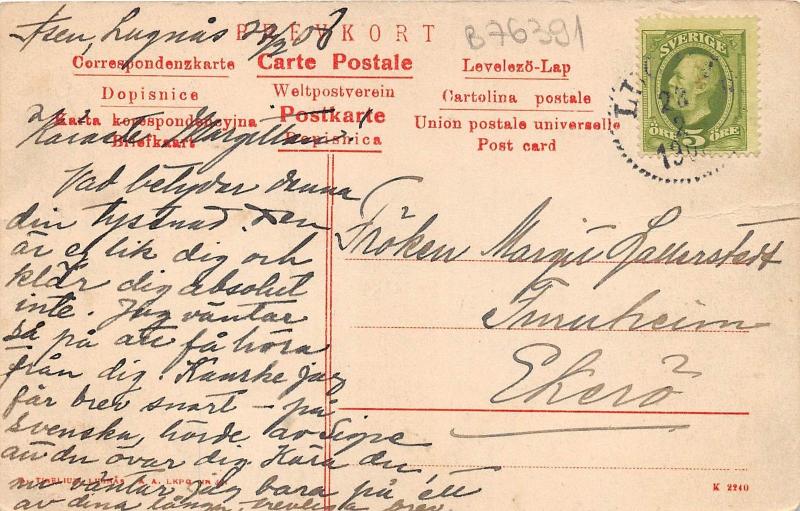 Åsen, Lugnås 22/2 08
BREVKORT
B76391
Correspondenzkarte
Carte Postale
Levelező-Lap
Dopisnice
Weltpostverein
Cartolina postale
Karta korespondencyjna
Postkarte
Union postale universelle
Briefkaart
Dopisnica
Post card
SVERIGE
ÖRE 5 ÖRE
Kära
Vad betyder denna
din tystnad. Den
är ej lik dig och
klär dig absolut
inte. Jag väntar
så på att få höra
från dig. Kanske jag
får brev snart – på
svenska, hörde av Signe
att du övar dig. Kära du,
nu väntar jag bara på ett
av dina långa, trevliga brev.
Fröken Margit Hallerstedt
Furuheim
Ekerö
K 2240